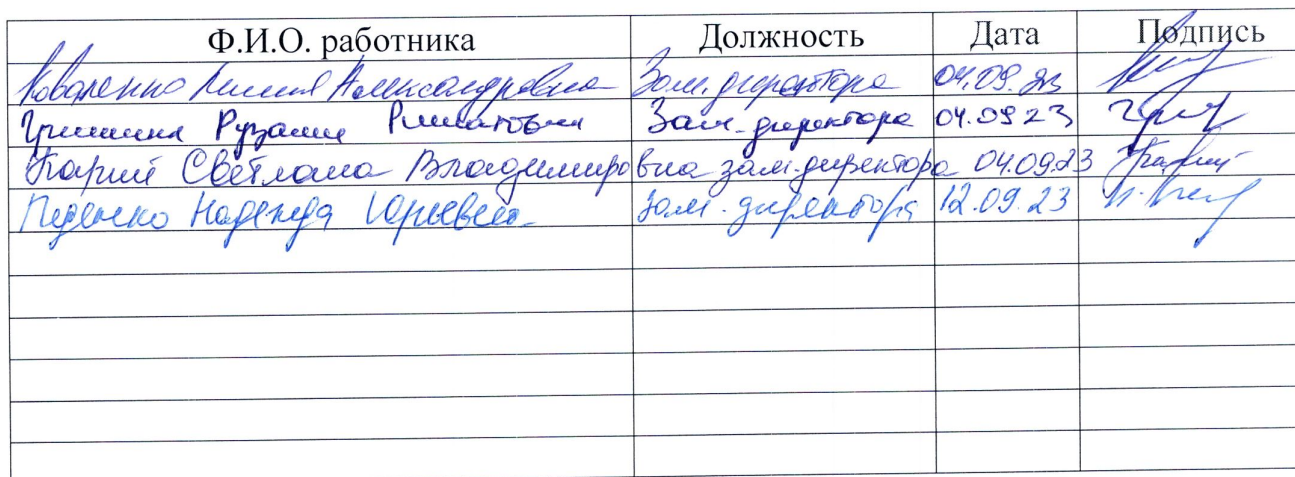 Ф.И.О. работника Должность Дата Подпись
Коваленко Лилия Александровна Зам. директора 04.09.23
Гришина Рузалия Ришатовна Зам. директора 04.09.23
Карий Светлана Владимировна зам. директора 04.09.23 Карий
Педенко Надежда Юрьевна зам. директора 12.09.23